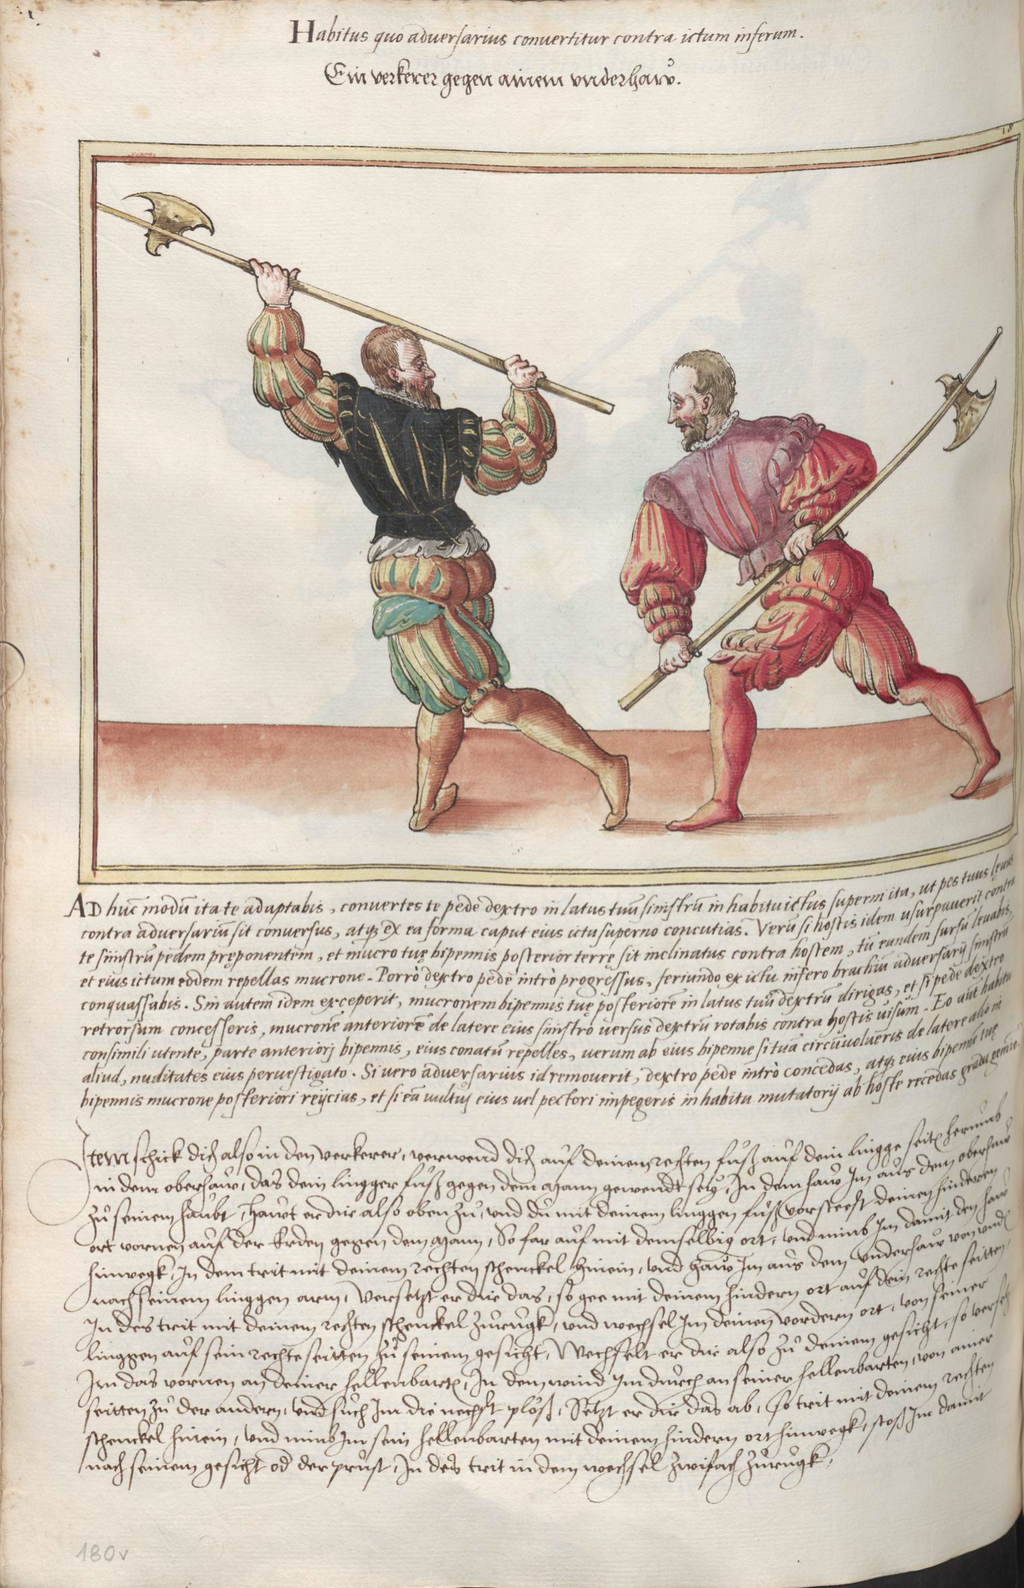 Habitus quo adversarius convertitur contra ictum inferum.
Ein verkerer gegen ainem underhauw.
AD hũc modũ ita te adaptabis, convertes te pede dextro in latus tuũ sinistrũ in habitu ictus superni ita, ut pes tuus
contra adversariũ sit conversus, atq; ex ea forma caput eius ictu superno concutias. Verũ si hostis idem usurpaverit contra
te sinistrũ pedem preponentem, et mucro tuę bipennis posterior terre sit inclinatus contra hostem, tũ eandem sursũ levabis,
et eius ictum eodem repellas mucrone. Porrò dextro pede intrò progressus, feriundo ex ictu infero brachiũ adversarij sinistrũ
conquassabis. Sin autem idem exceperit, mucronem bipennis tuę posteriorẽ in latus tuũ dextrũ dirigas, et si pede dextro
retrorsum concesseris, mucronẽ anteriorẽ de latere eius sinistro versus dextrũ rotabis contra hostis visum. Eo aut habitu
consimili utente, parte anteriorj bipennis, eius conatũ repelles, verum ab eius bipenne si tuã circũvolveris de latere alio in
aliud, nuditates eius pervestigato. Si vero adversarius id removerit, dextro pede intrò concedas, atq; eius bipennẽ tuę
bipennis mucrone posteriori reijcias, et si eã vultuj eius vel pectori impegeris in habitu mutatorij ab hoste recedas gradu
Item schick dich also in den verkerer, verwend dich auf deinem rechten fuß auf dein lingge seiten herumb
in dem oberhaw, das dein lingger fuß gegen dem mann gewendt sey, In dem haw Im aus dem oberhaw
zů seinem haubt, Hawt er dir also oben zů, und du mit deinem linggen fuß vorsteest deinen hinderen
ort vornen auf der Erden gegen dem mann, So far auf mit demselbig ort, und nimb Im damit den haw
hinwegk, In dem trit mit deinem rechten schenckel hinein, und haw Im aus dem underhaw von
nach seinem linggen arm, Versetzt er dir das, so gee mit deinem hindern ort auf dein rechte seitten,
In des trit mit deinem rechten schenckel zurugk, und wechsel Im deinen vordern ort, von seiner
linggen auf sein rechte seitten zů seinem gesicht, Wechselt er dir also zů deinem gesicht, so versetz
Im das vornen an deiner hellenbarten, In dem wind Im durch an seiner hellenbarten, von ainer
seitten zů der andern, und such Im die nechst plöß, Setzt er dir das ab, so trit mit deinem rechten
schenckel hinein, und nimb Im sein hellenbarten mit deinem hindern ort hinwegk, stoß Im damit
nach seinem gesicht od der prust, In des trit in dem wechsel zwifach zurugk,
180v